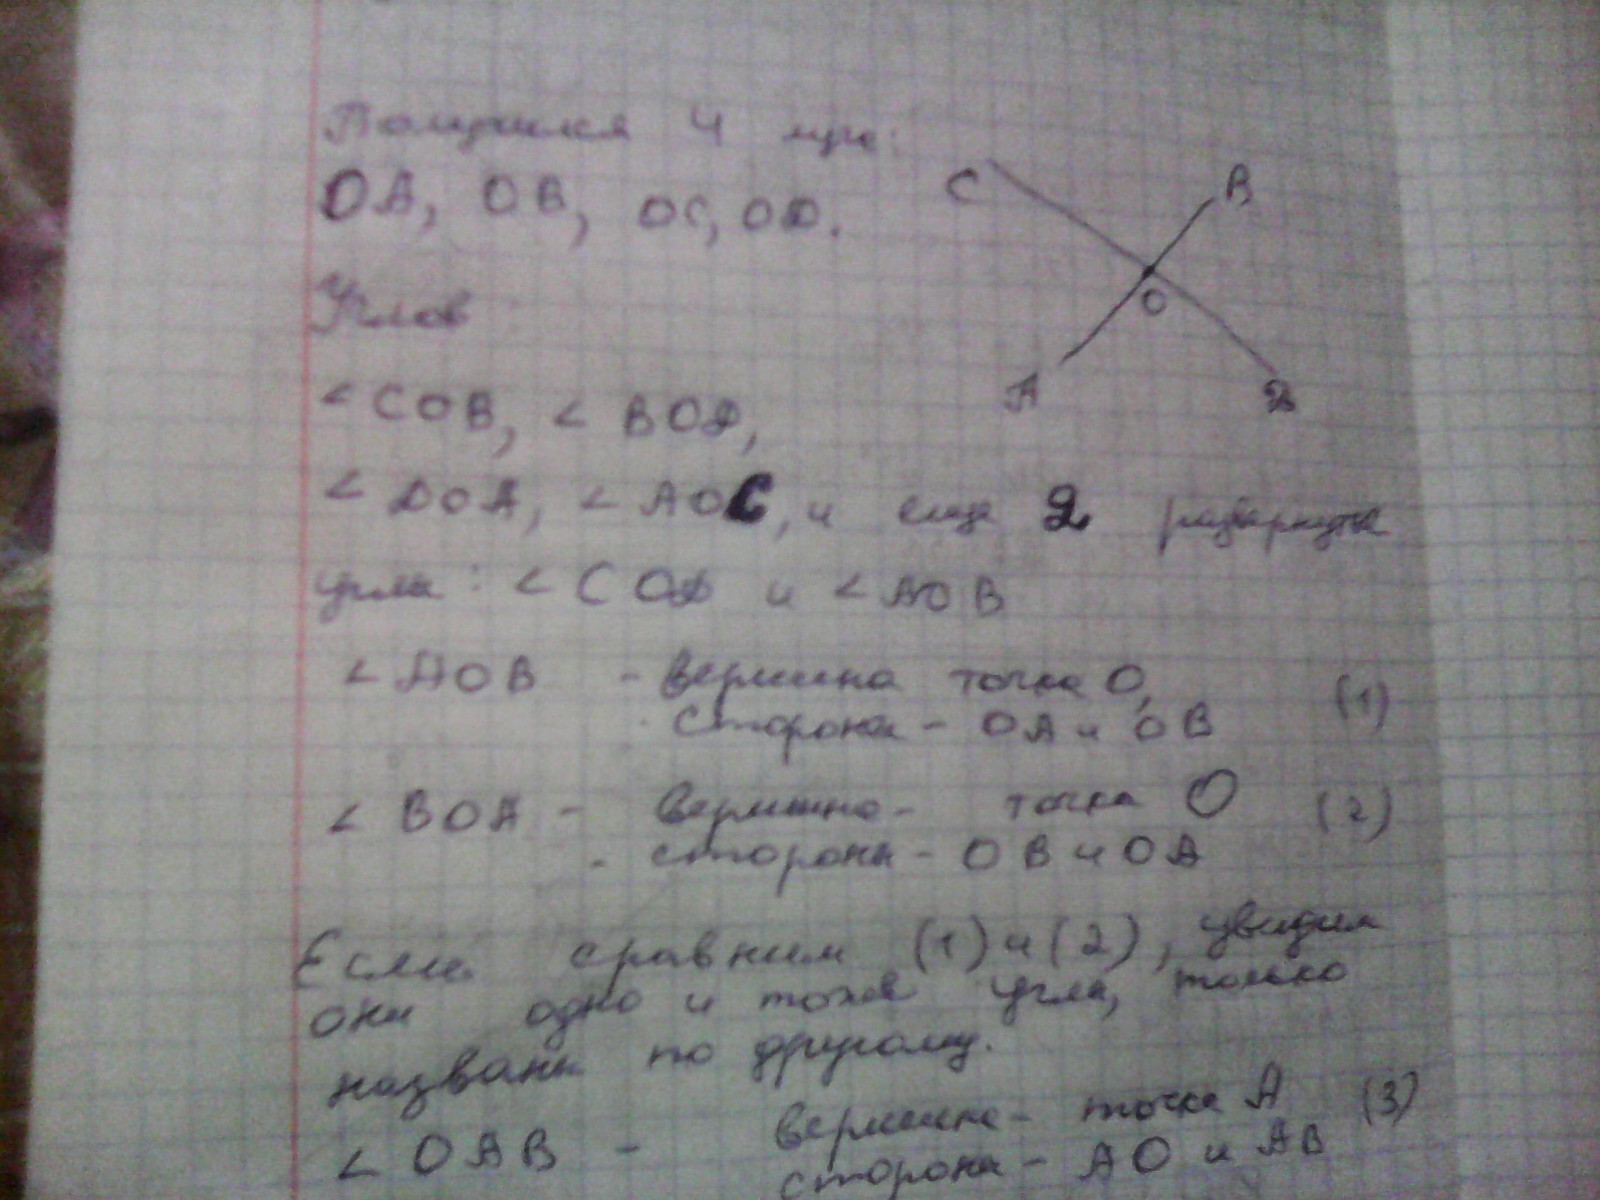 Получился 4 луча:
OA, OB, OC, OD.
Углов
∠COB, ∠BOD,
∠DOA, ∠AOC, и еще 2 развернутые
угла: ∠COD и ∠AOB
∠AOB - вершина точка O, (1)
стороны - OA и OB
∠BOA - вершина - точка O (2)
стороны - OB и OA
Если сравним (1) и (2), увидим
они одно и тоже угла, только
названы по другому.
∠OAB - вершина - точка A (3)
стороны - AO и AB
C
B
O
A
D